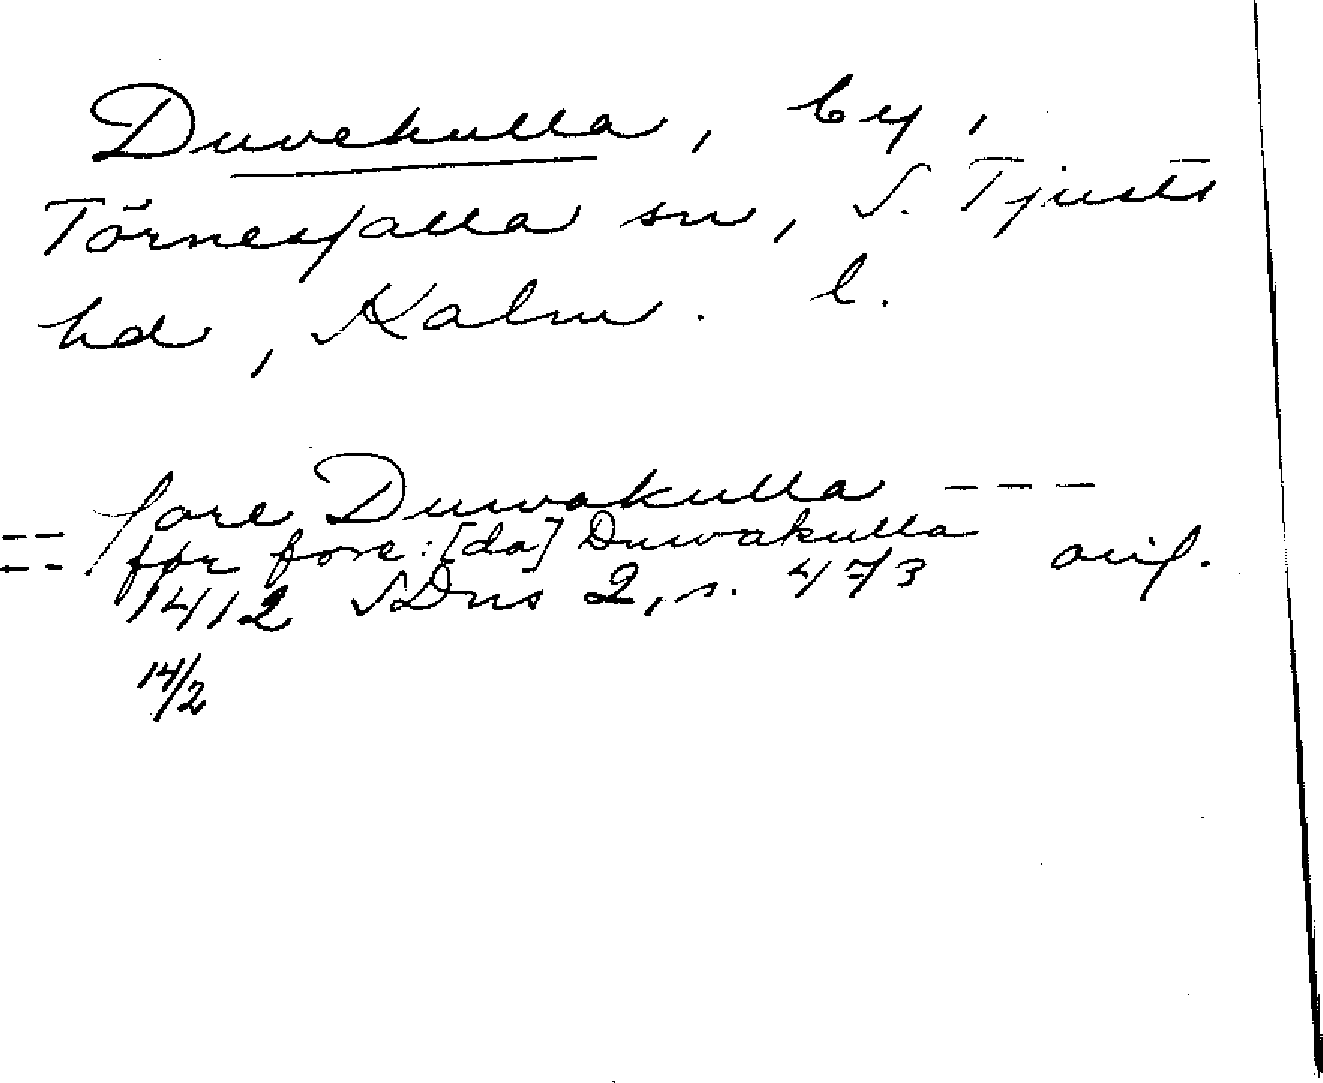 Duvekulla, by,
Törnesfalla sn, S. Tjusts
hd, Kalm. l.
fore Duwakulla ---
-- för fore: [da] Duwakulla
-- 1412 SDns 2, s. 473 avs.
14/2